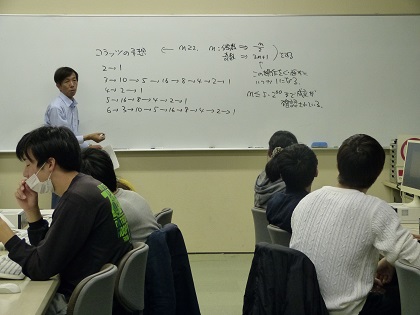 コラッツの予想 ← n≥2, n:偶数 ⇒ n/2
奇数 ⇒ 3n+1 とする
2→1
3→10→5→16→8→4→2→1
4→2→1
5→16→8→4→2→1
6→3→10→5→16→8→4→2→1
この操作をくり返すと
いつか1になる.
確認されている.